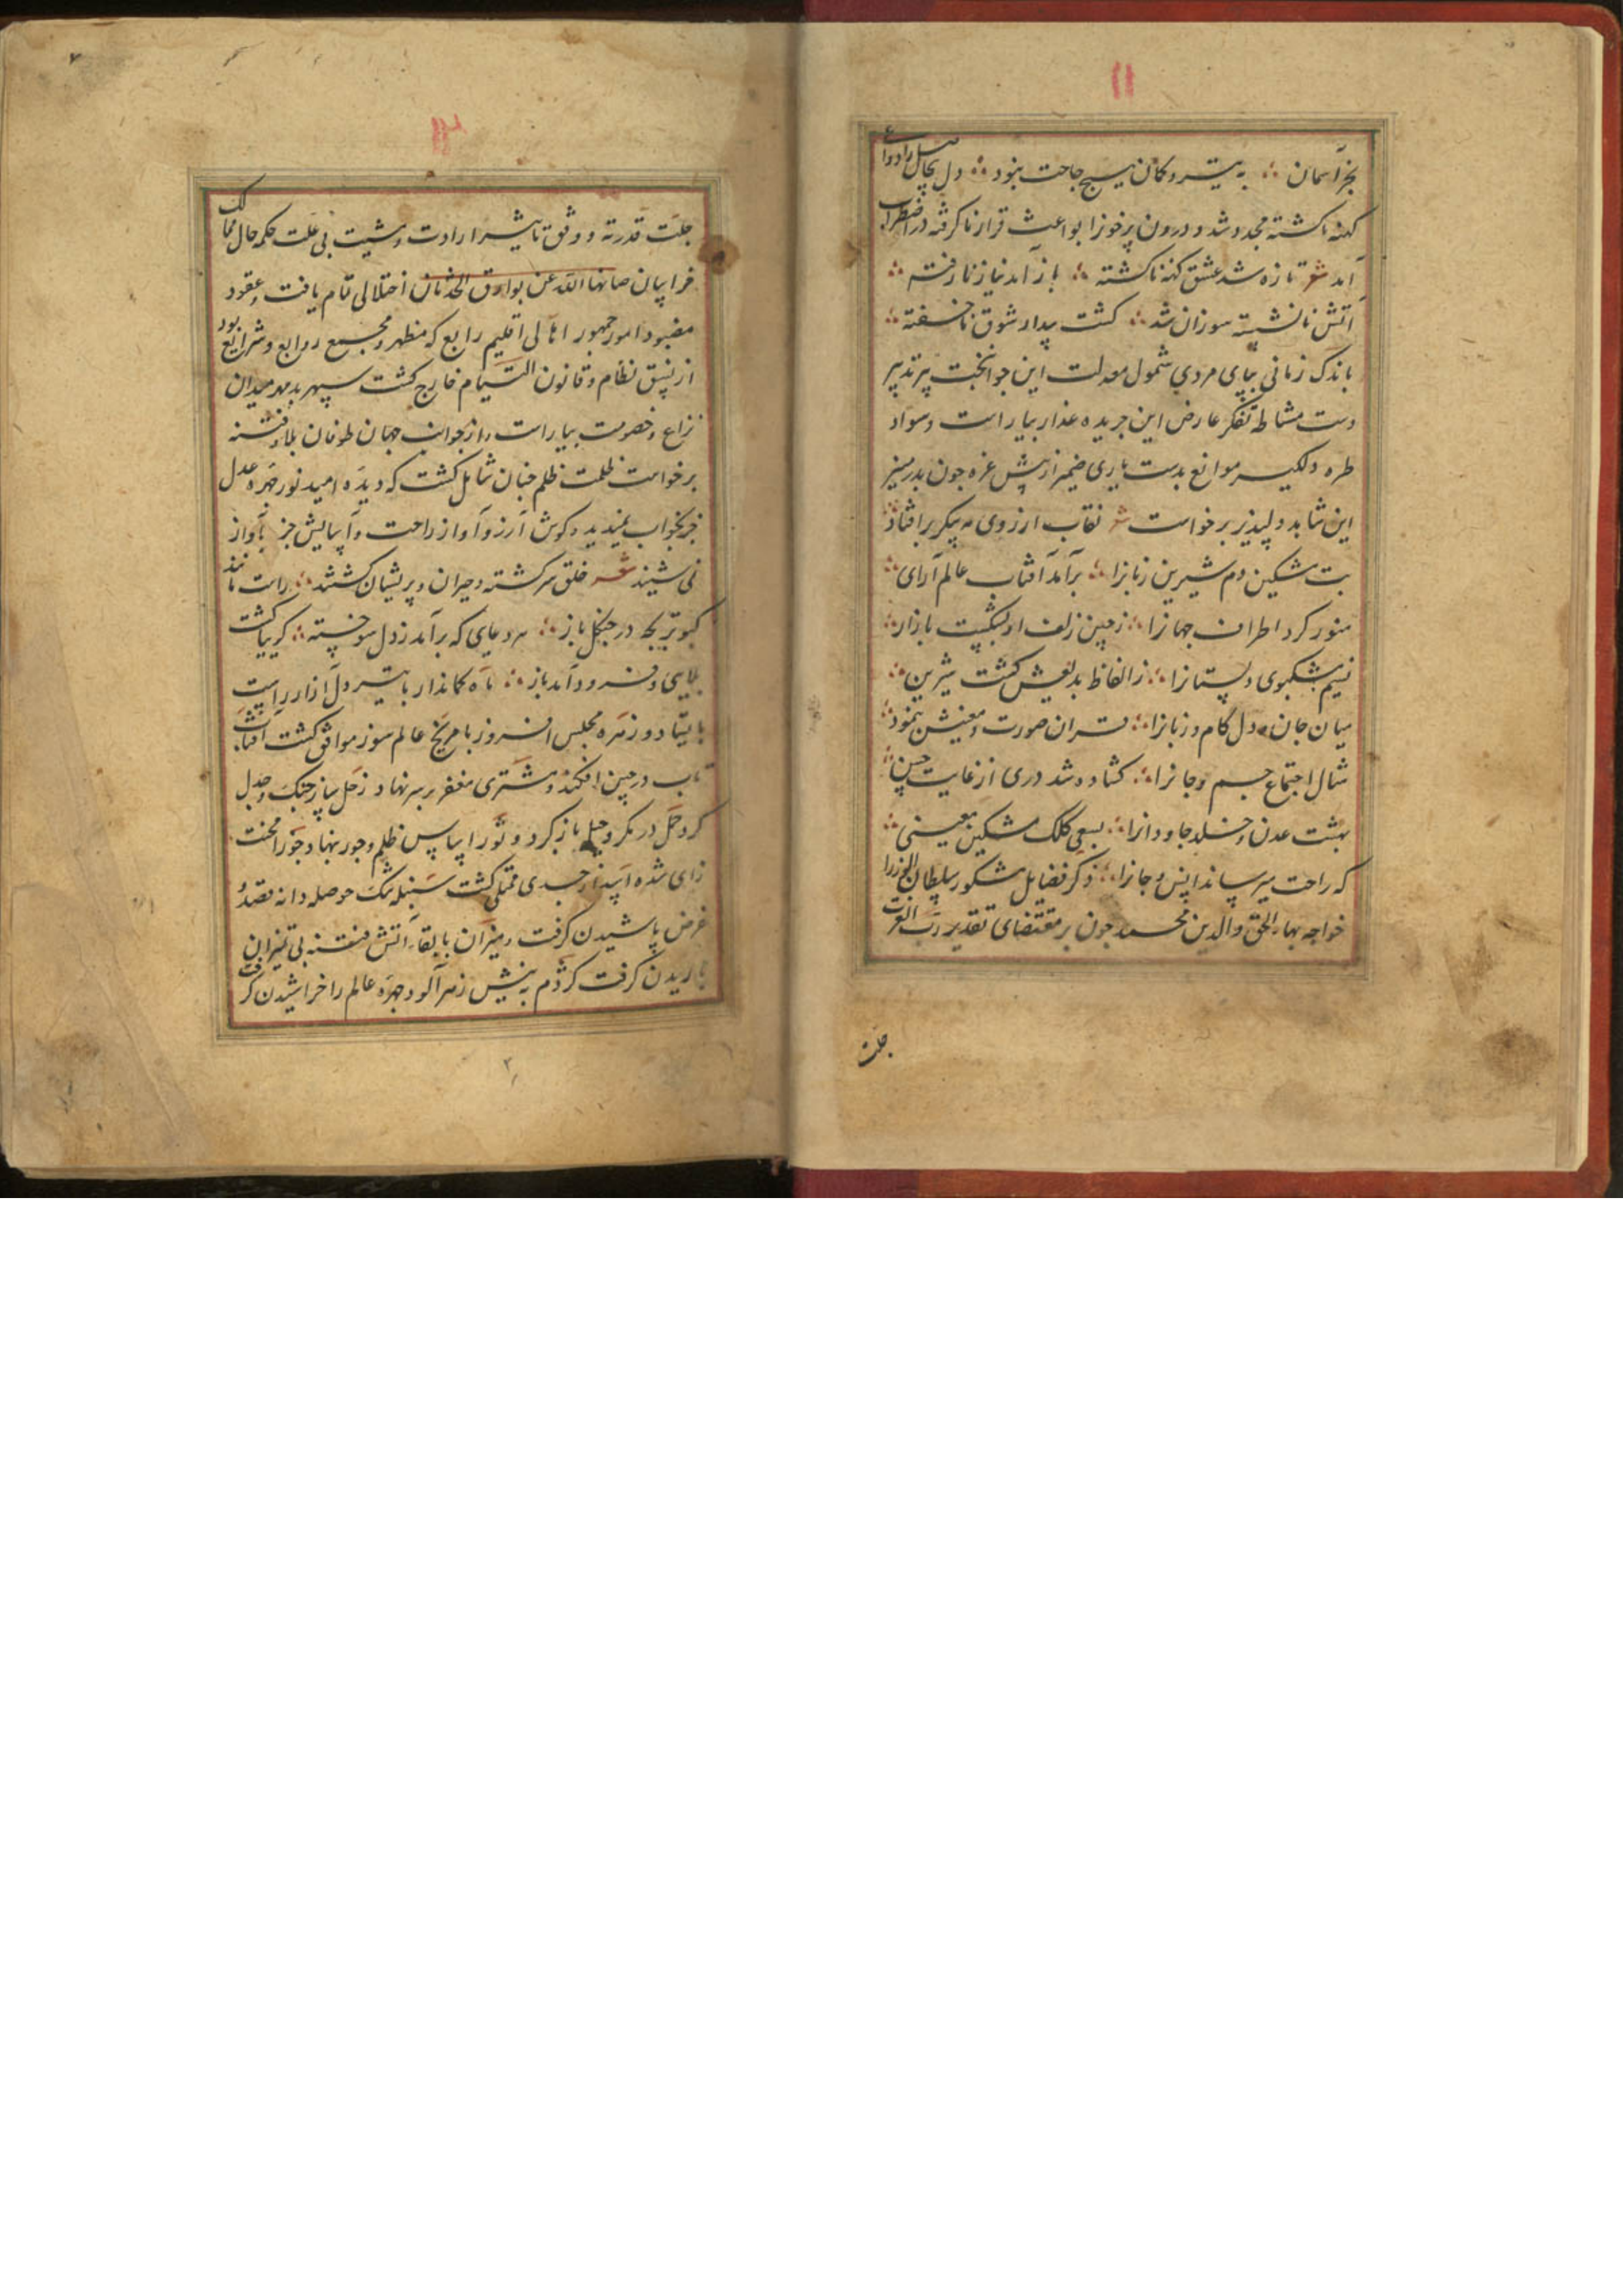 ۱۱
بجز آسمان ؛ به تیر و کمان هیچ حاجت نبود ؛ دل بحال
کهنه ناکشته مجدد شد و درون پرخون را بواعث قرار ناکرفته در اضطراب
آمد شعر تازه شد عشق کهنه ناکشته ؛ باز آمد نیاز نارفته
آتش نانشسته سوزان شد ؛ کشت بیدار شوق ناخسفته
باندک زمانی بپای مردی شمول معدلت این جوانبخت پیر تدبیر
دست مشاطه تفکر عارض این جریده عذار بیاراست و سواد
طره دلکیر موانع بدست یاری ضمیر از پیش غره جون بدر منیر
این شاهد دلپذیر برخواست شعر نقاب از روی مه پیکر برافتاد
بت مشکین دم شیرین زبانرا ؛ برآمد آفتاب عالم آرای
منور کرد اطراف جهانرا ؛ زچین زلف او بشکست بازار
نسیم مشکبوی دلستانرا ؛ ز الفاظ بدیعش کشت شیرین
میان جان و دل کام و زبانرا ؛ قران صورت و معنیش بنمود
مثال اجتماع جسم و جانرا ؛ کشاده شد دری از غایت حسن
بهشت عدن و خلد جاودانرا ؛ بسعی کلک مشکین معینی
که راحت میرساند انس و جانرا ؛ ذکر فضایل مشکور سلطان الوزرا
خواجه بهاء الحق والدین محمد جون بر مقتضای تقدیر رب العزت
جلت
۱۲
جلت قدرته و وفق تاثیر ارادت و مشیت بی علت حکمه حال ممالک
خراسان صانها الله عن بوارق الحدثان اختلالی تمام یافت و عقود
مضبود امور جمهور اهالی اقلیم رابع که مظهر و مجمع روابع و شرایع بود
از نسق نظام و قانون التیام خارج کشت سپهر بدمهر میدان
نزاع و خصومت بیاراست و از جوانب جهان طوفان بلا و فتنه
برخواست ظلمت ظلم چنان شامل کشت که دیده امید نور چهره عدل
جز بخواب نمیدید و کوش آرزو آواز راحت و آسایش جز بآواز
نمی شنید شعر خلق سرکشته و حیران و پریشان کشتند ؛ راست مانند
کبوتر بچه در چنکل باز ؛ هر دعای که برآمد ز دل سوخته ؛ کریبا کشت
بلایی و فرود آمد باز ؛ ماه کماندار با تیر دل آزار راست
بایستاد و زهره مجلس افروز با مریخ عالم سوز موافق کشت آفتاب
تاب در چین افکند و مشتری مغفر بر سر نهاد و زحل ساز جنک و جدل
کرد حمل در مکر و حیل باز کرد و ثور اساس ظلم و جور نهاد و جوزا محنت
زای شده اسد از جدی ممتلی کشت سنبله تنک حوصله دانه بقصد و
غرض پاشیدن کرفت و میزان بابقاء آتش فتنه بی تمیزان
باریدن کرفت کژدم به نیش زهر آلود چهره عالم را خراشیدن کرفت